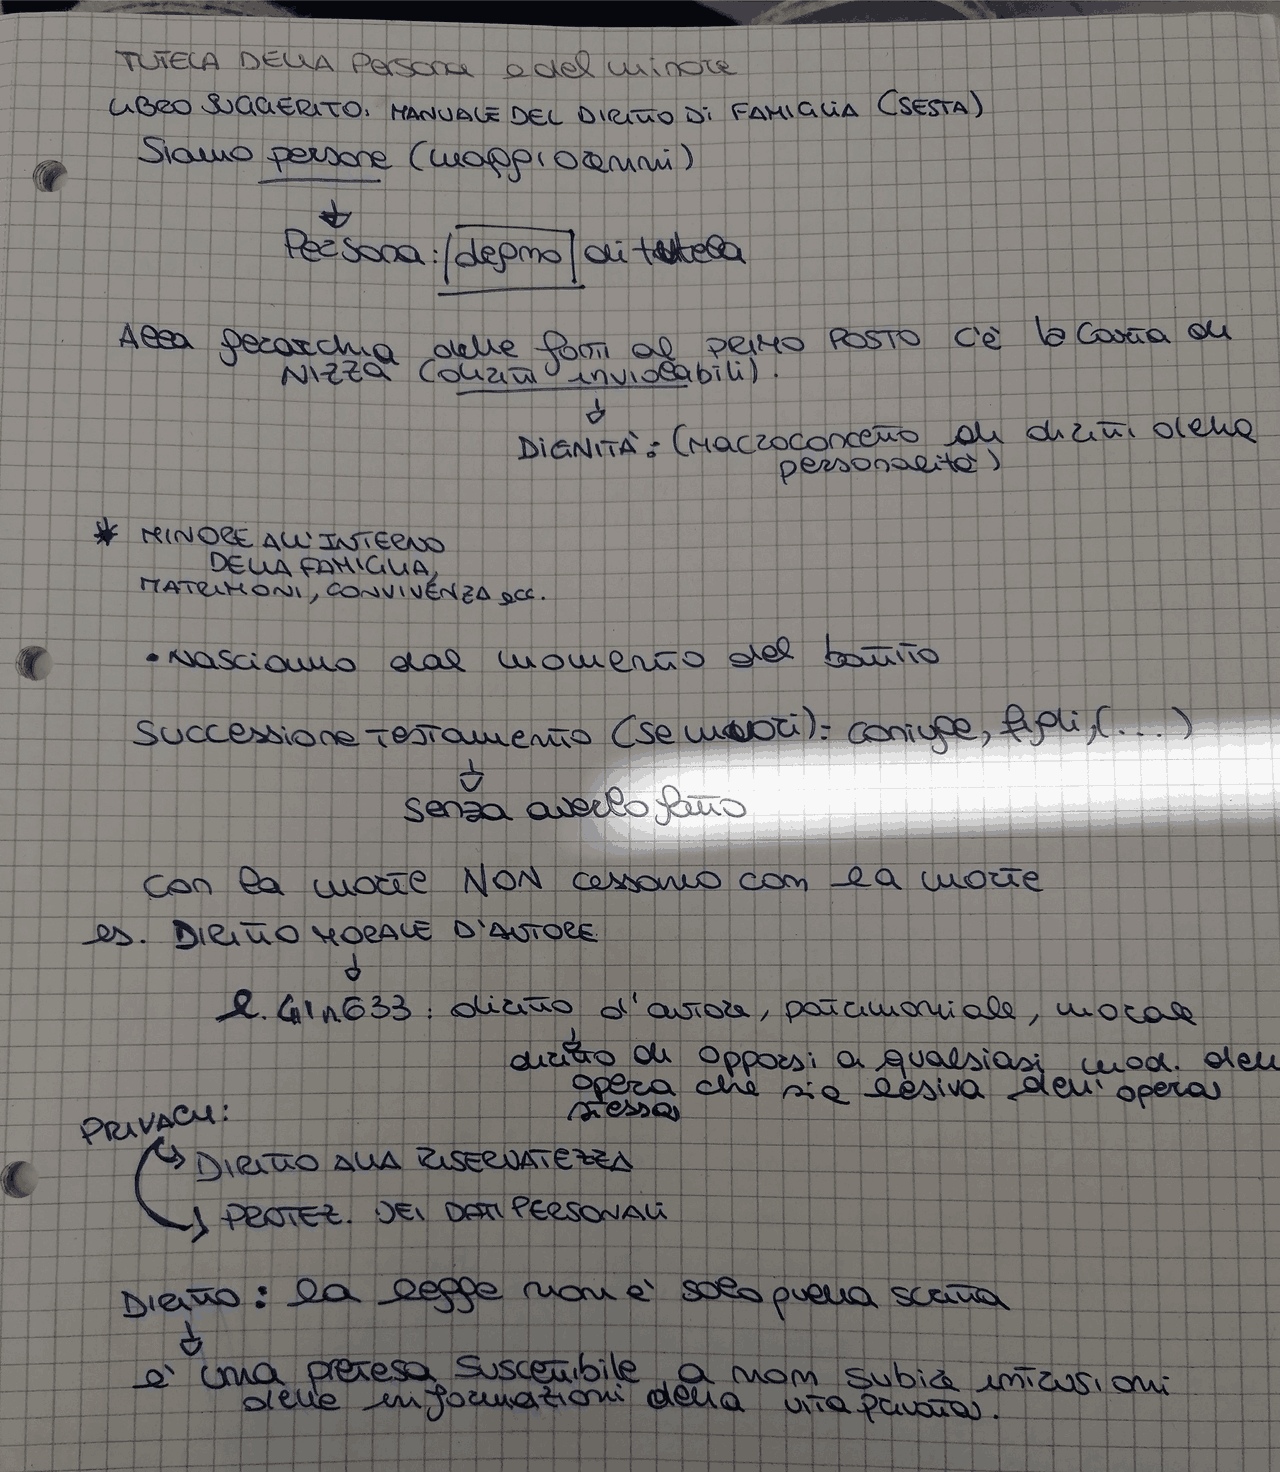 TUTELA DELLA Persona e del minore
LIBRO SUGGERITO: MANUALE DEL DIRITTO DI FAMIGLIA (SESTA)
Siamo persone (maggiorenni)
Persona: degno di tutela
Alla gerarchia delle fonti al PRIMO POSTO c'è la Carta di
NIZZA (diritti inviolabili).
DIGNITÀ: (MACROCONCETTO di diritti della
personalità)
* MINORE ALL'INTERNO
DELLA FAMIGLIA,
MATRIMONI, CONVIVENZA ecc.
• Nasciamo dal momento del battito
Successione testamento (se muori): coniuge, figli, (...)
senza averlo fatto
con la morte NON cessano con la morte
es. DIRITTO MORALE D'AUTORE
l. 41 n 633: diritto d'autore, patrimoniale, morale
diritto di opporsi a qualsiasi mod. dell
opera che sia lesiva dell'opera
stessa
PRIVACY:
DIRITTO ALLA RISERVATEZZA
PROTEZ. DEI DATI PERSONALI
DIRITTO: la legge non è solo quella scritta
è una pretesa suscettibile a non subire intrusioni
delle informazioni della vita privata.